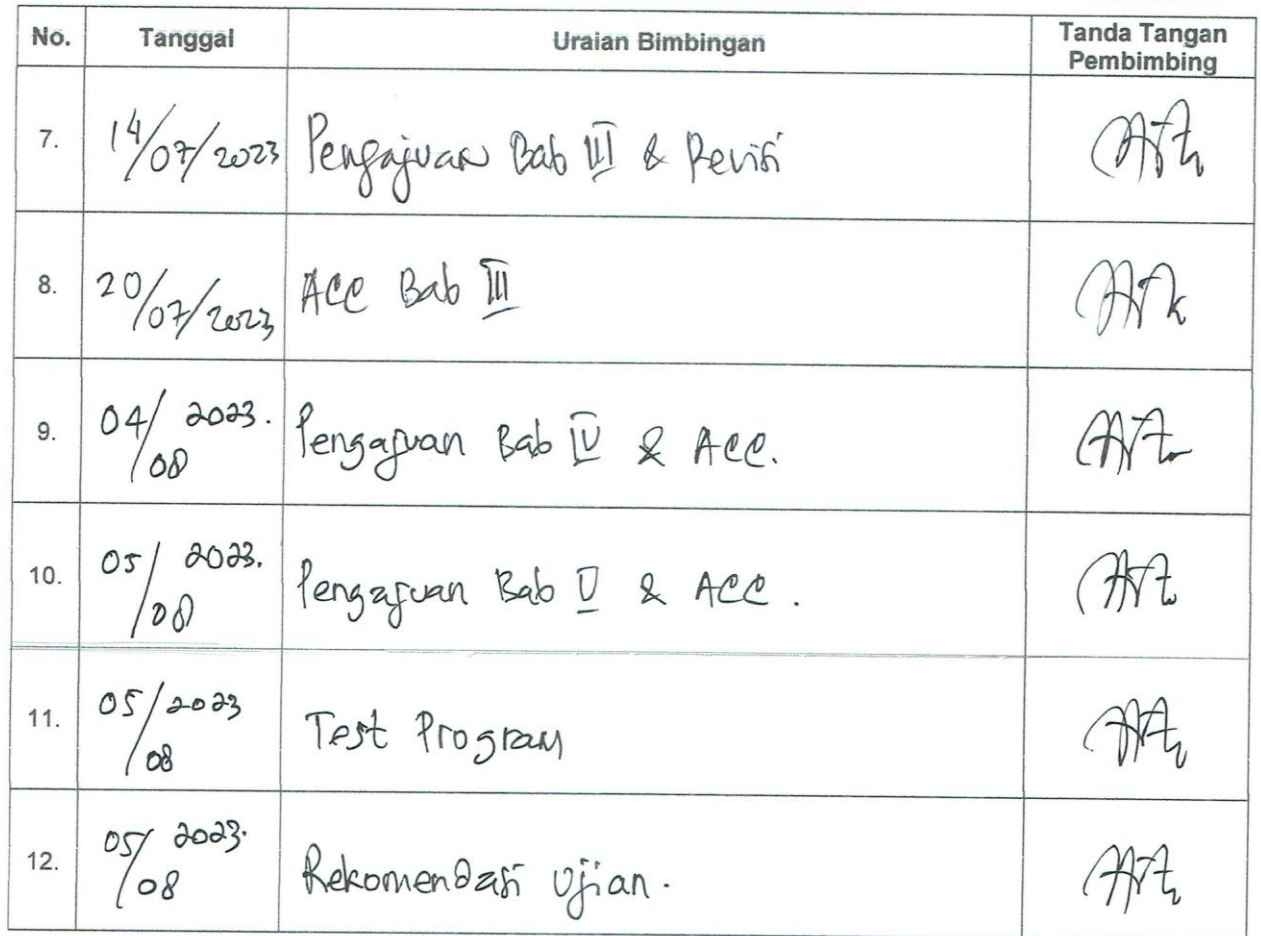 No. Tanggal Uraian Bimbingan Tanda Tangan Pembimbing
7. 14/07/2023 Pengajuan Bab III & Revisi
8. 20/07/2023 ACC Bab III
9. 04/08 2023. Pengajuan Bab IV & ACC.
10. 05/08 2023. Pengajuan Bab V & ACC.
11. 05/08 2023 Test Program
12. 05/08 2023. Rekomendasi Ujian.